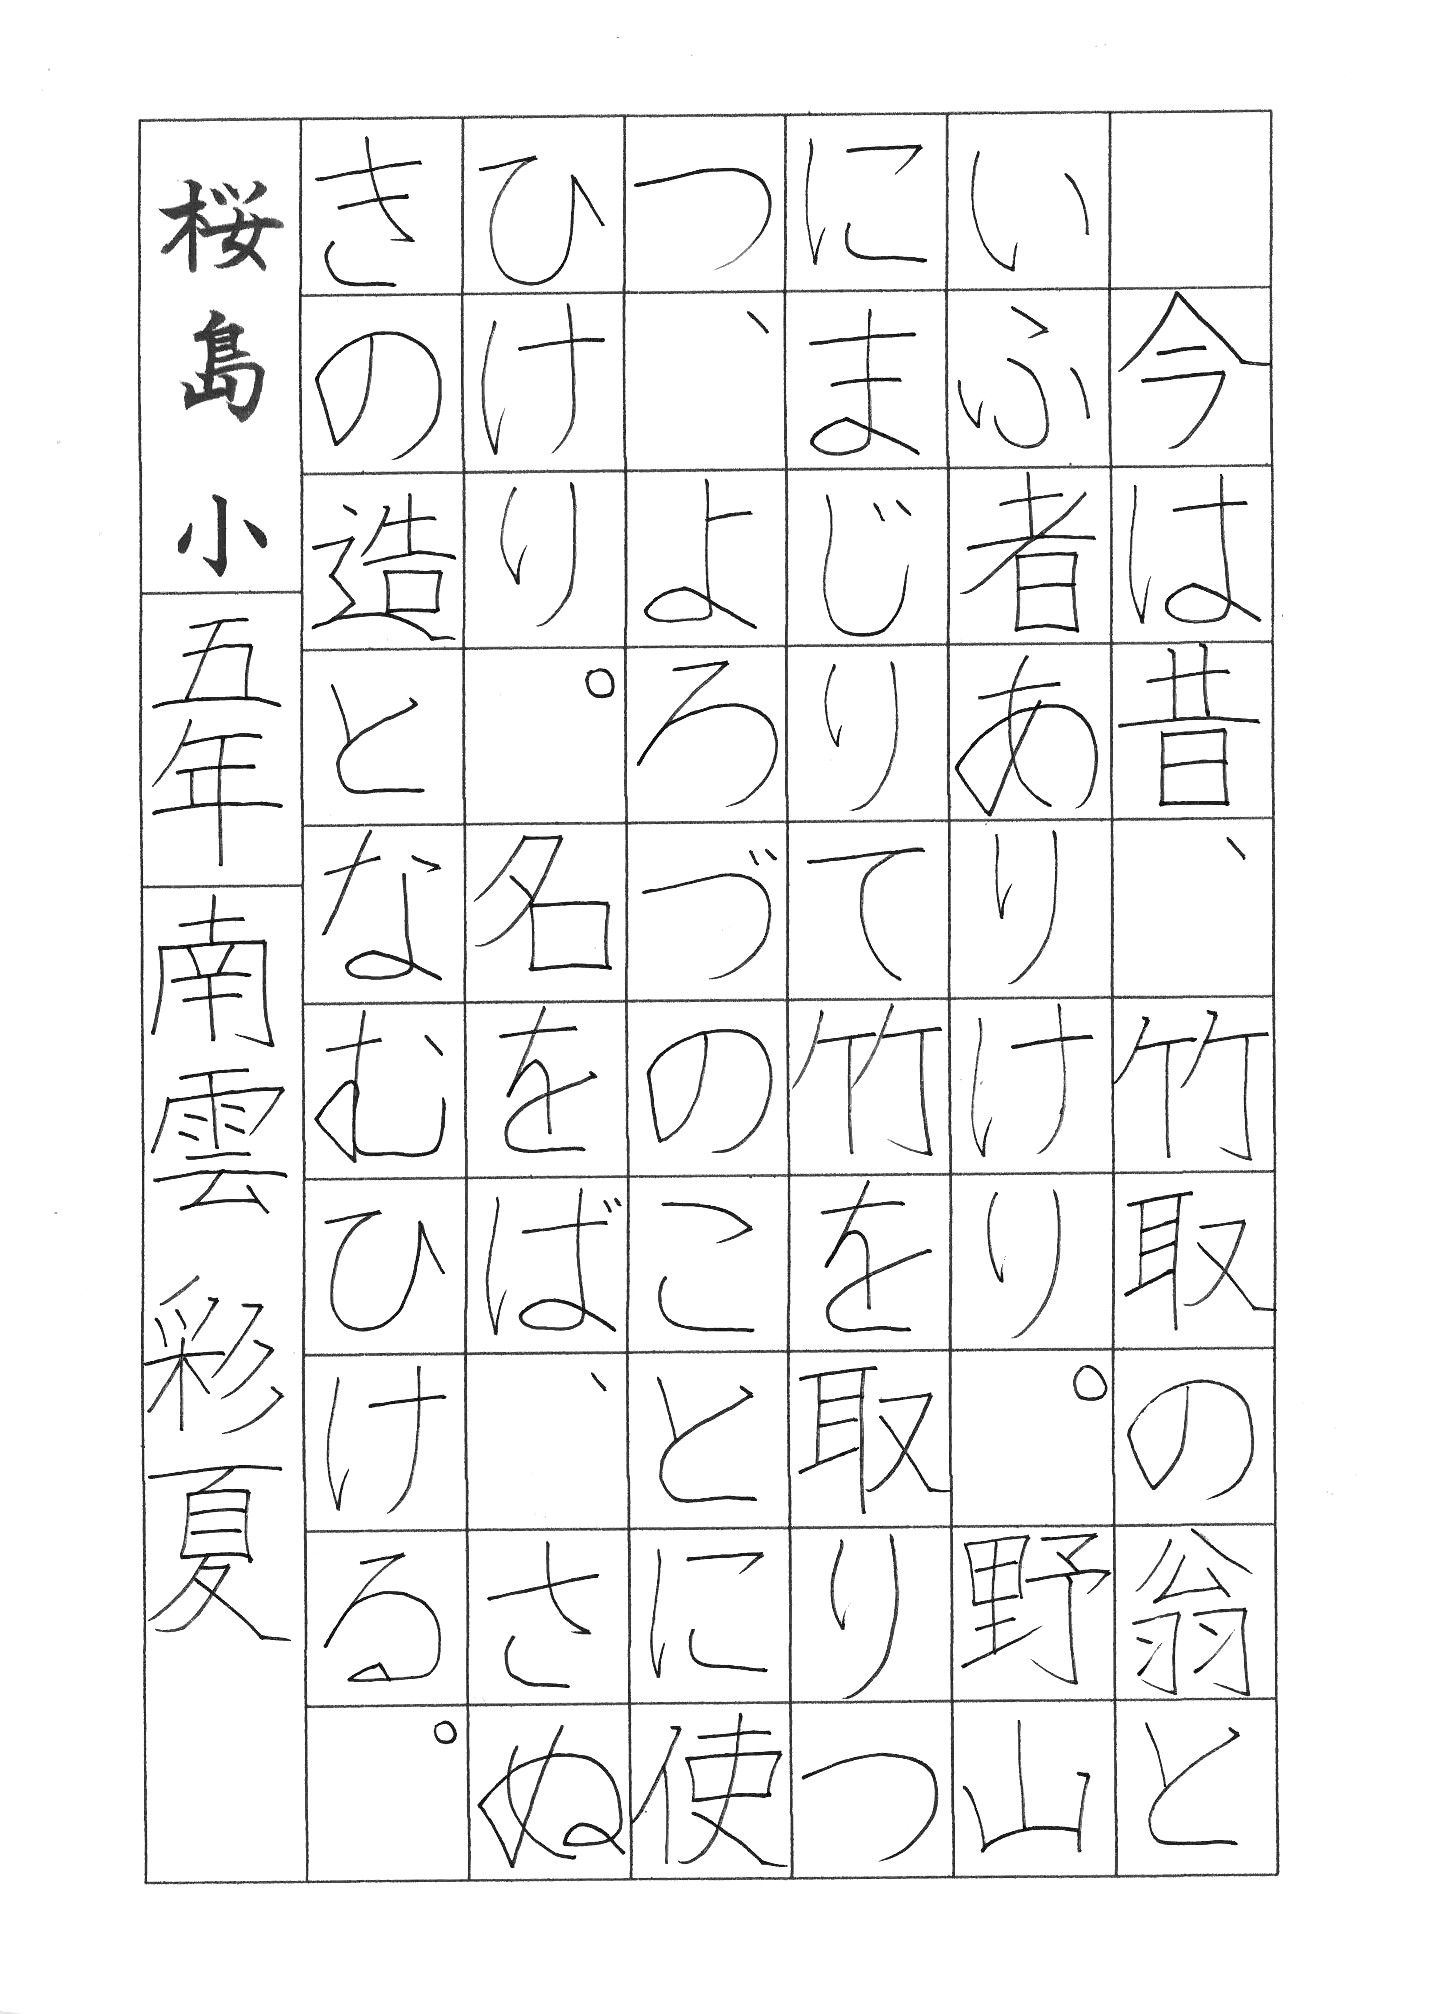 今は昔、竹取の翁と
いふ者ありけり。野山
にまじりて竹を取りつ
つ、よろづのことに使
ひけり。名をば、さぬ
きの造となむひける。
桜島小 五年 南雲彩夏